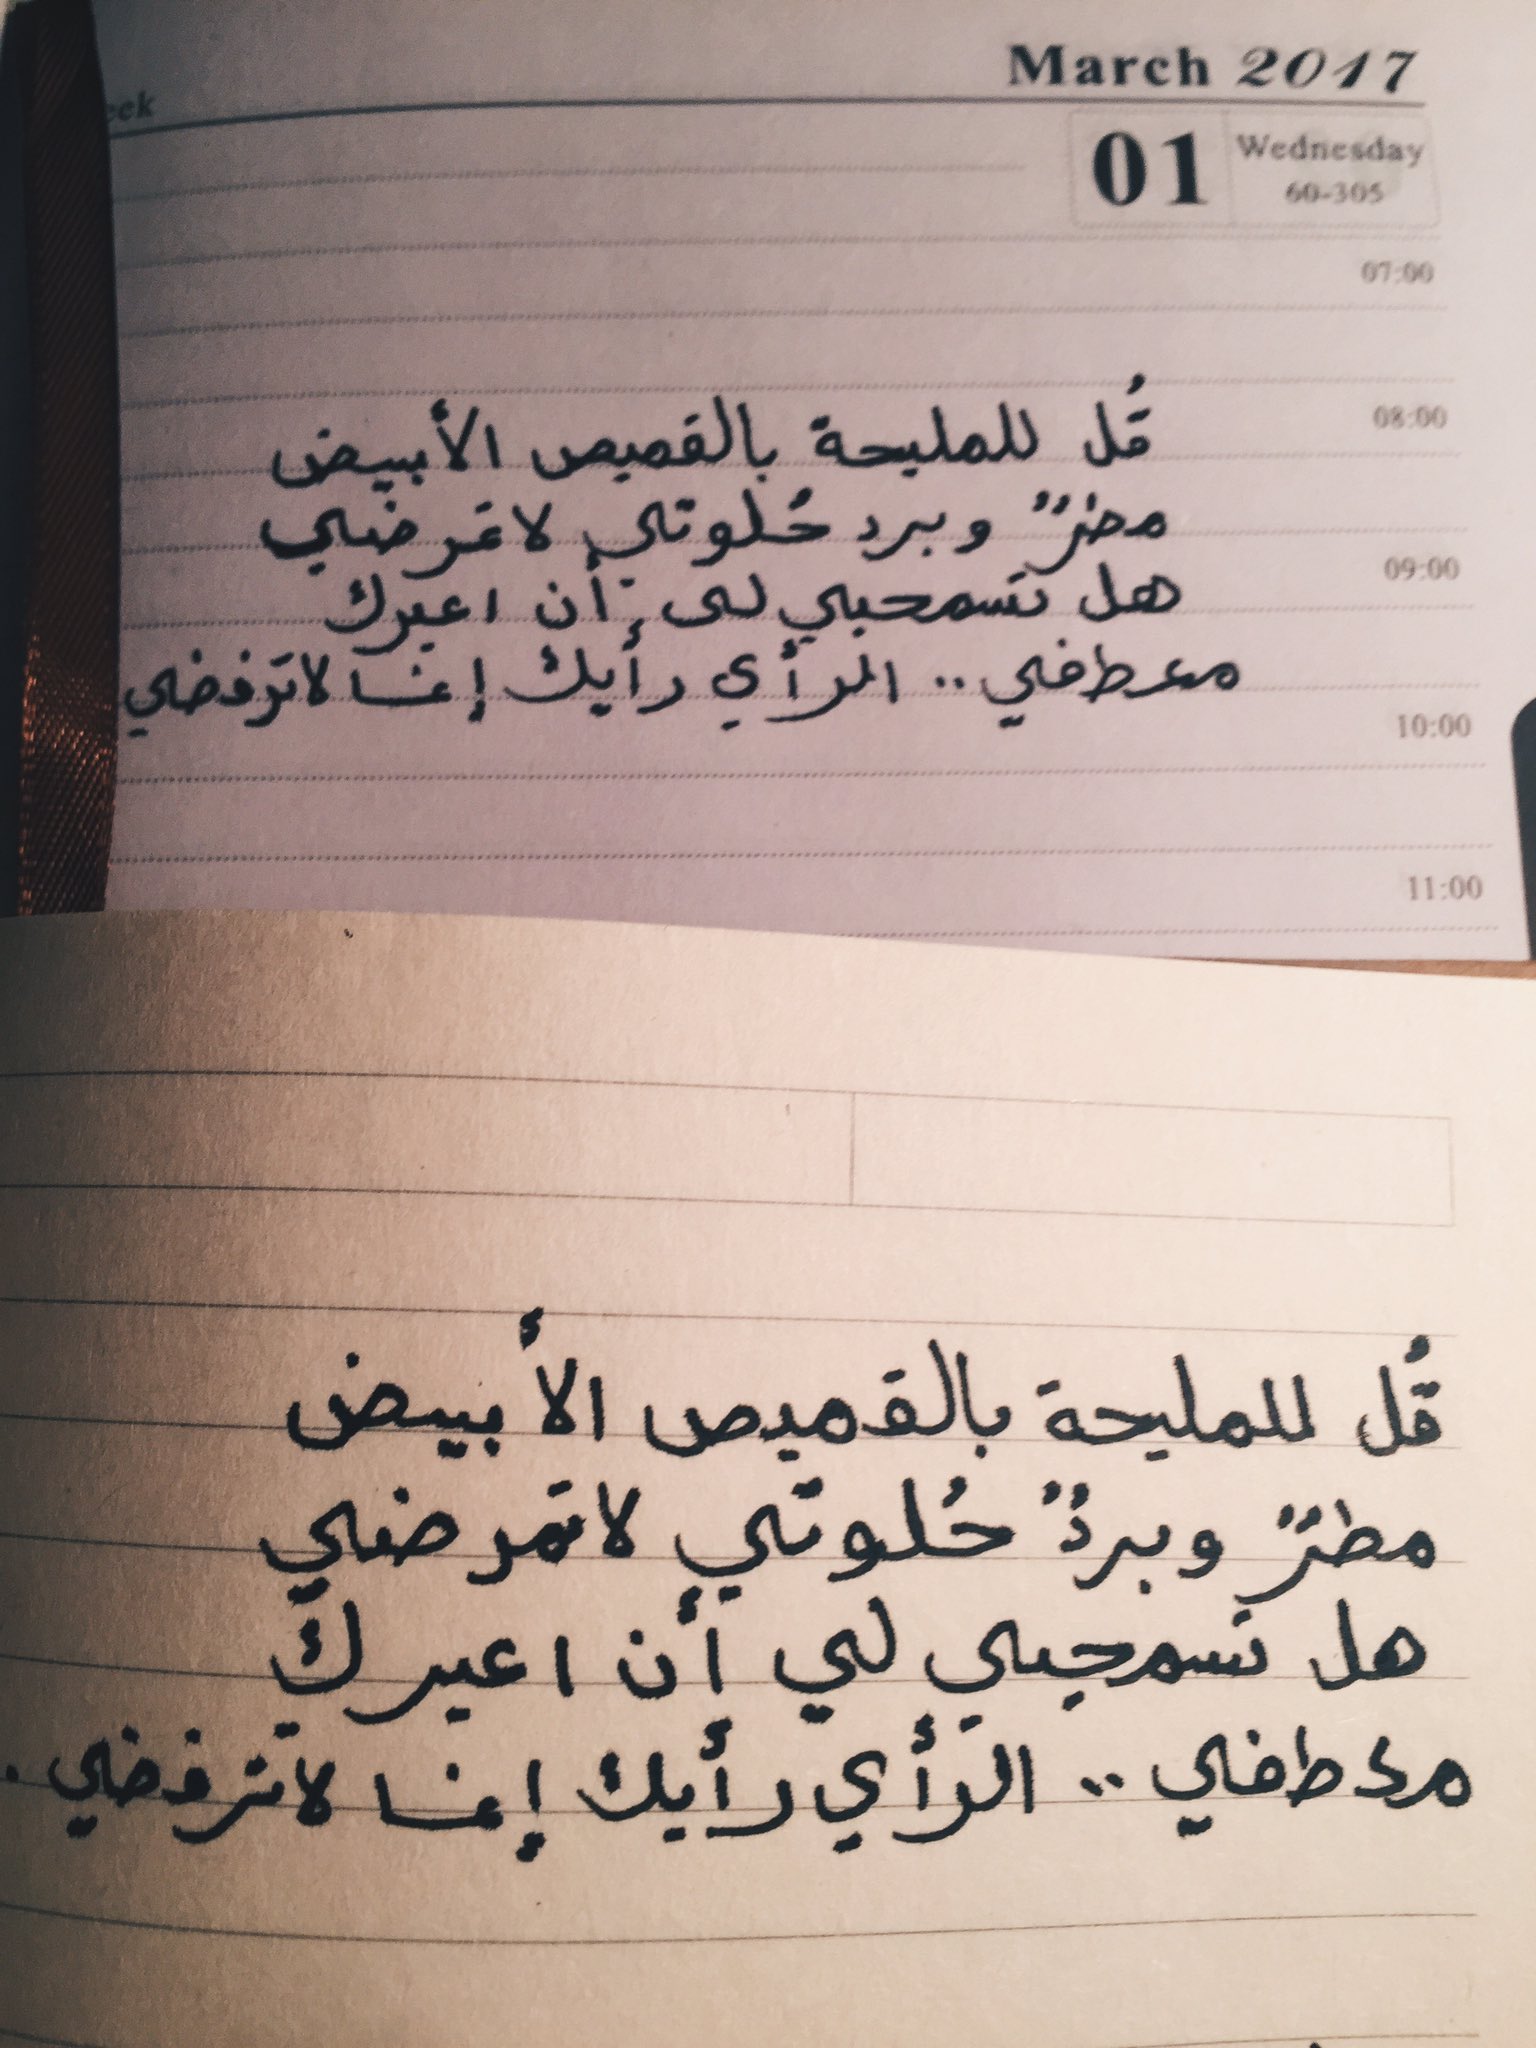 eek
March 2017
01
Wednesday
60-305
07:00
08:00
قُل للمليحة بالقميص الأبيض
مطرٌ وبرد حُلوتي لا تمرضي
09:00
هل تسمحيلي لي أن اعيرك
معطفي .. الرأي رأيك إنما لا ترفضي
10:00
11:00
قُل للمليحة بالقميص الأبيض
مطرٌ وبردٌ حُلوتي لا تمرضي
هل تسمحيلي لي أن اعيرك
معطفي .. الرأي رأيك إنما لا ترفضي .